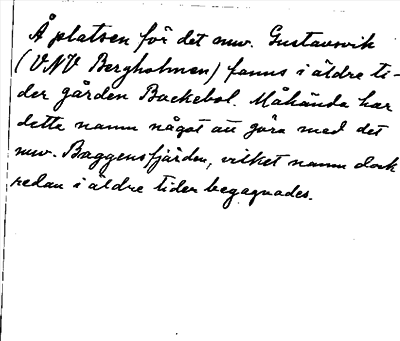 Å platsen för det nuv. Gustavsvik
(VNV Bergholmen) fanns i äldre ti-
der gården Backebol. Måhända har
detta namn något att göra med det
nuv. Baggensfjärden, vilket namn dock
redan i äldre tider begagnades.